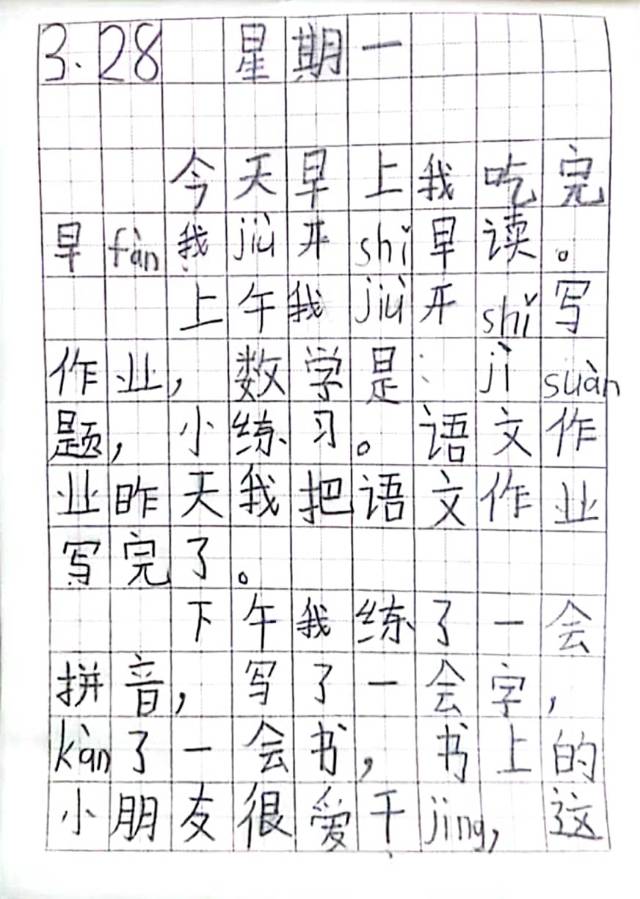 3.28 星期一
今天早上我吃完
早fàn我jiù开shǐ早读。
上午我jiù开shǐ写
作业，数学是：jì suàn
题，小练习。语文作
业昨天我把语文作业
写完了。
下午我练了一会
拼音，写了一会字，
kàn了一会书，书上的
小朋友很爱干jing，这